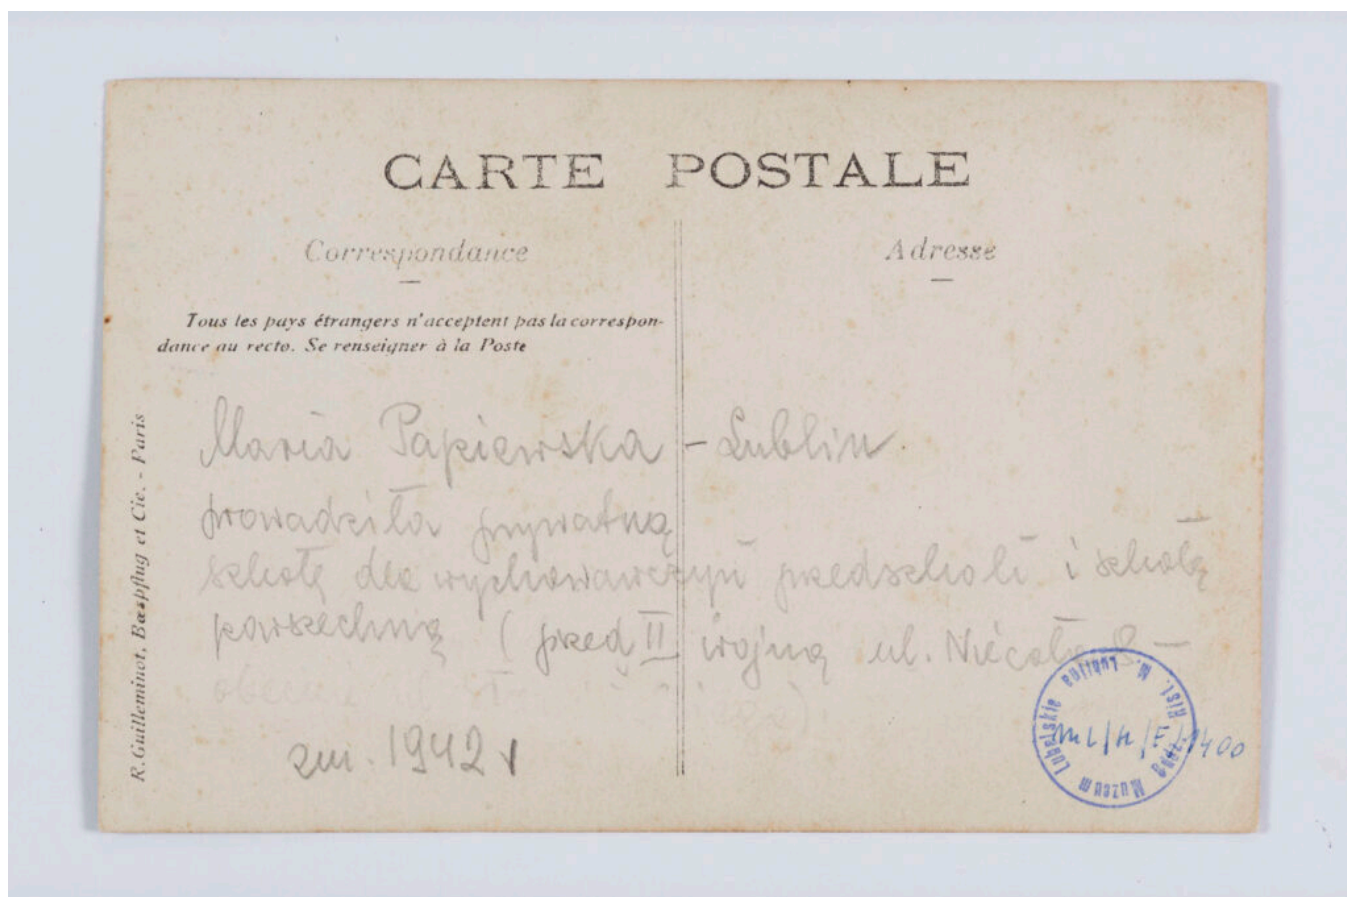 CARTE POSTALE
Correspondance
Adresse
Tous les pays étrangers n'acceptent pas la correspon-
dance au recto. Se renseigner à la Poste
R. Guilleminot, Bœspflug et Cie. - Paris
Maria Papiewska - Lublin.
prowadziła prywatną
szkołę dla wychowawczyń przedszkoli i szkołę
powszechną (przed II wojną ul. Niecała
obecnie
zm. 1942
Muzeum Lubelskie
Hist. M. Lublina
ML/H/F/1400